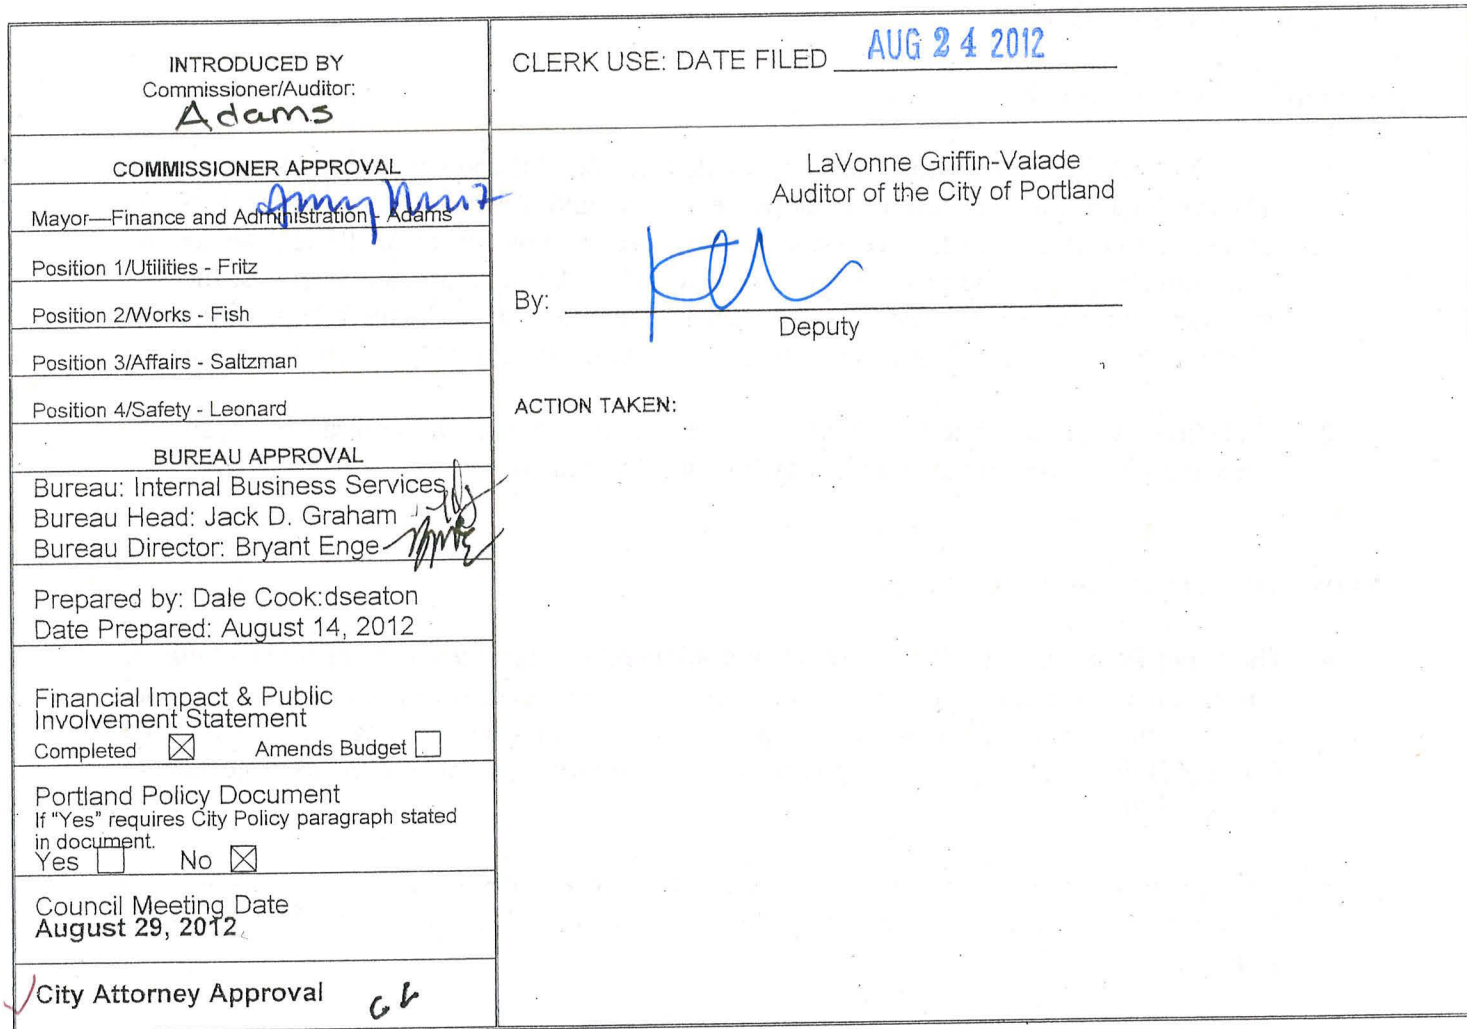 INTRODUCED BY
Commissioner/Auditor:
Adams
COMMISSIONER APPROVAL
Mayor—Finance and Administration - Adams
Position 1/Utilities - Fritz
Position 2/Works - Fish
Position 3/Affairs - Saltzman
Position 4/Safety - Leonard
BUREAU APPROVAL
Bureau: Internal Business Services
Bureau Head: Jack D. Graham
Bureau Director: Bryant Enge
Prepared by: Dale Cook:dseaton
Date Prepared: August 14, 2012
Financial Impact & Public
Involvement Statement
Completed ☒ Amends Budget ☐
Portland Policy Document
If "Yes" requires City Policy paragraph stated
in document.
Yes ☐ No ☒
Council Meeting Date
August 29, 2012
City Attorney Approval
CLERK USE: DATE FILED AUG 24 2012
LaVonne Griffin-Valade
Auditor of the City of Portland
By:
Deputy
ACTION TAKEN: